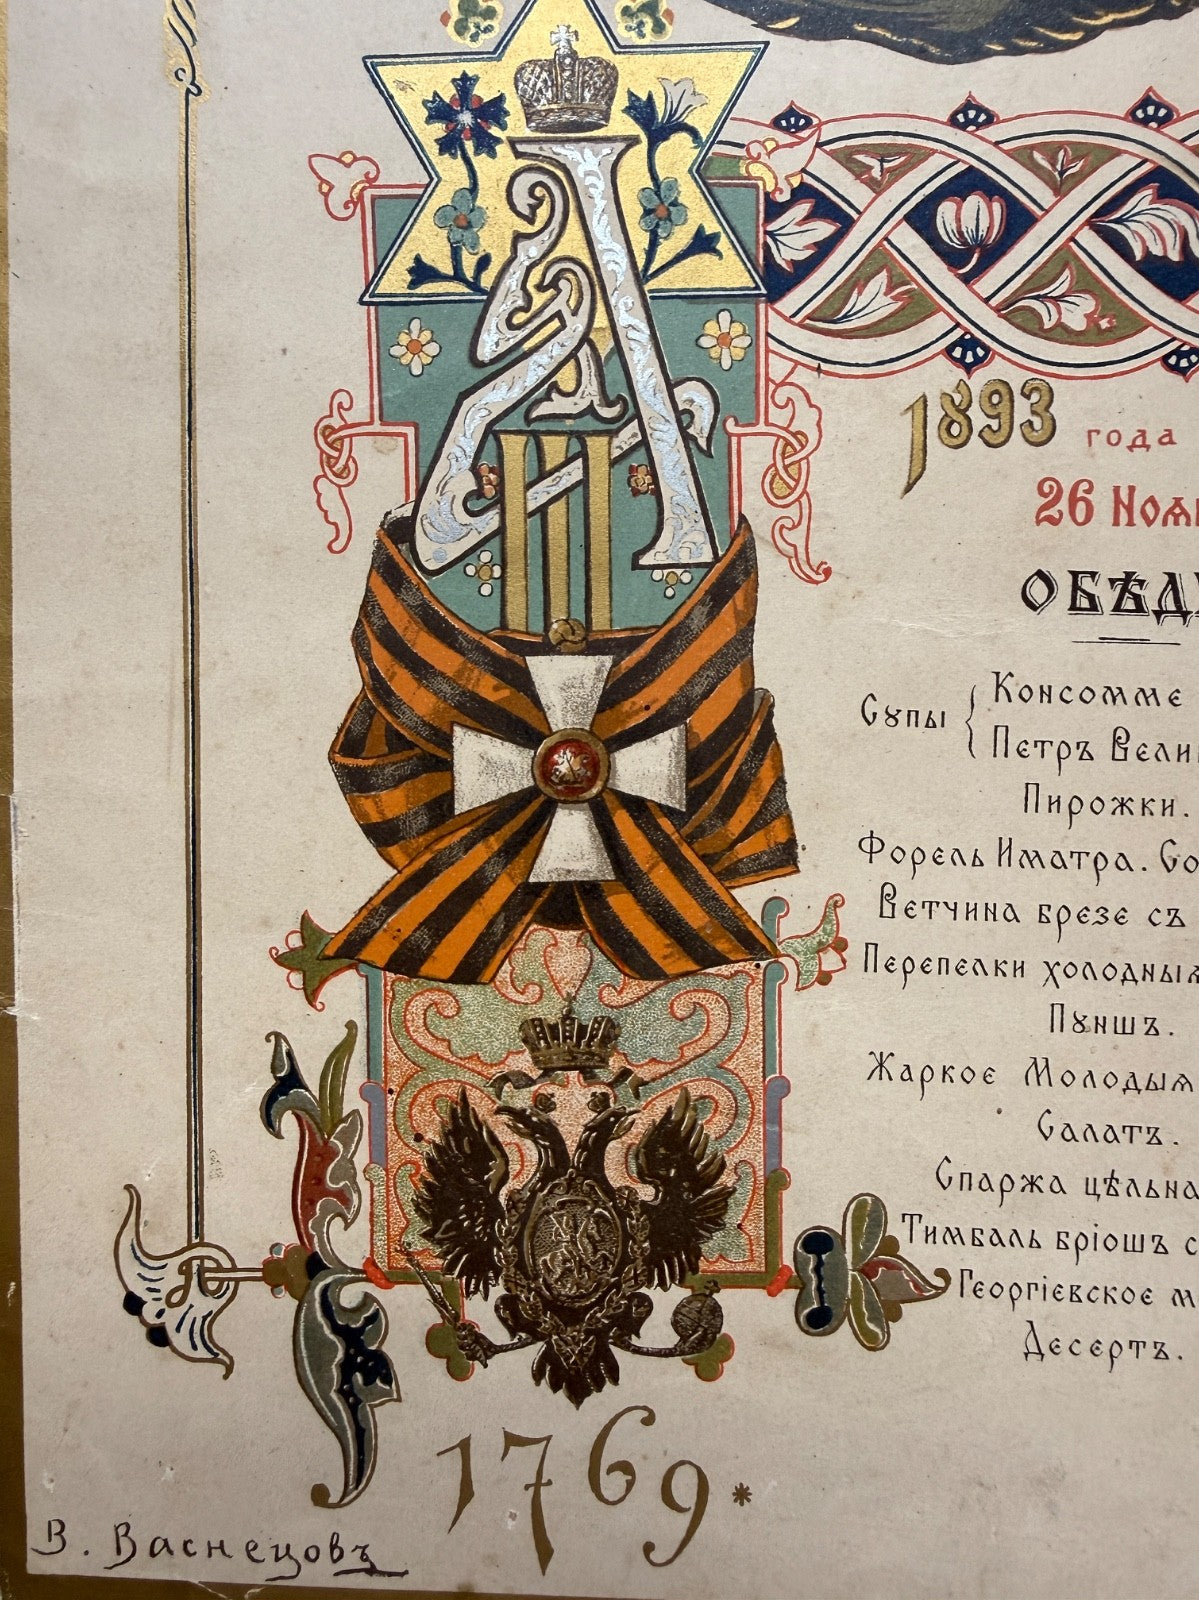 А
III
1893 года
26 Ноя
ОБѢД
Супы
Консомме
Петръ Вели
Пирожки.
Форель Иматра. Со
Ветчина брезе съ
Перепелки холодныя
Пуншъ.
Жаркое Молодыя
Салатъ.
Спаржа цѣльна
Тимбаль бріошъ с
Георгіевское м
Десертъ.
1769.
В. Васнецовъ